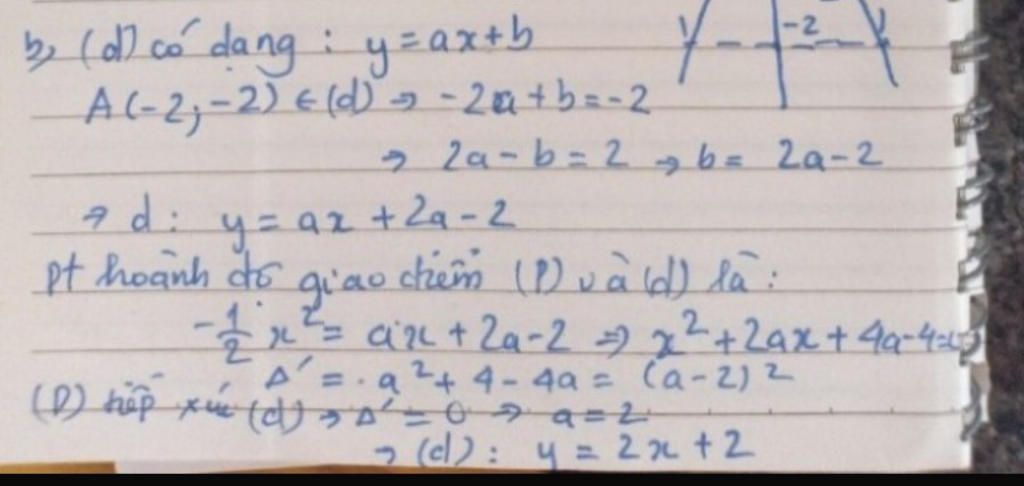 b, (d) có dạng : y = ax + b
-2
A(-2; -2) ∈ (d) → -2a + b = -2
→ 2a - b = 2 → b = 2a - 2
→ d : y = ax + 2a - 2
pt hoành độ giao điểm (P) và (d) là :
-1/2 x² = ax + 2a - 2 ⇒ x² + 2ax + 4a - 4 =
Δ' = a² + 4 - 4a = (a - 2)²
(P) tiếp xúc (d) → Δ' = 0 → a = 2
→ (d) : y = 2x + 2